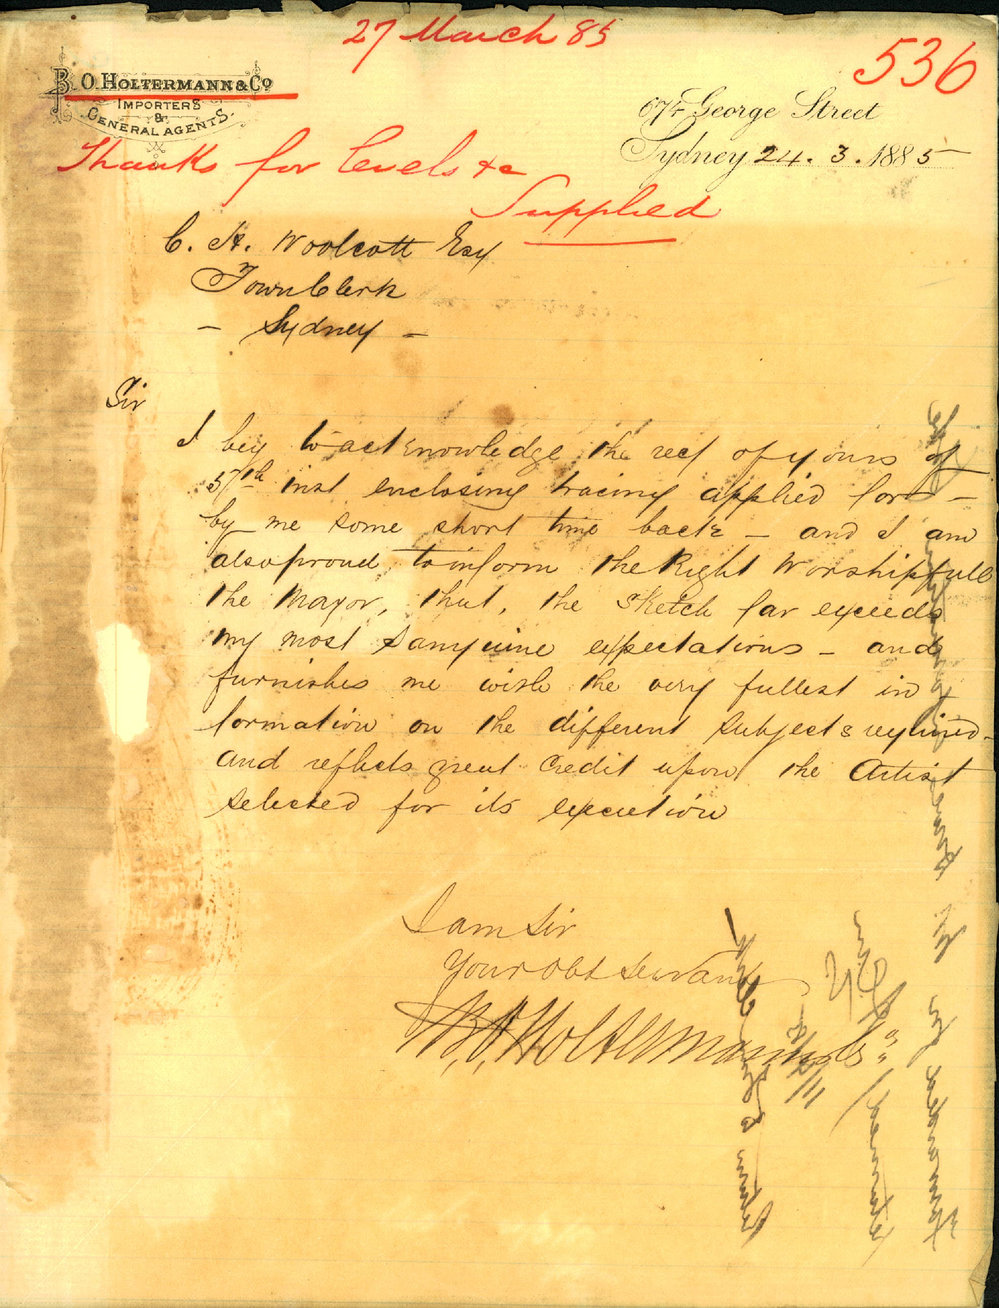 27 March 85
536
B. O. HOLTERMANN & CO
IMPORTERS
&
GENERAL AGENTS.
674 George Street
Sydney 24. 3. 1885
Thanks for levels &c
Supplied
C. H. Woolcott Esq
Town Clerk
- Sydney -
Sir
I beg to acknowledge the rect of yours of
inst enclosing tracing applied for -
by me some short time back - and I am
also proud to inform the Right Worshipfull
the Mayor, that, the sketch far exceeds
my most sanguine expectations - and
furnishes me with the very fullest in
formation on the different subjects required -
and reflects great credit upon the Artist
selected for its execution
I am Sir
Your Obt Servant
B. O. Holtermann & Co